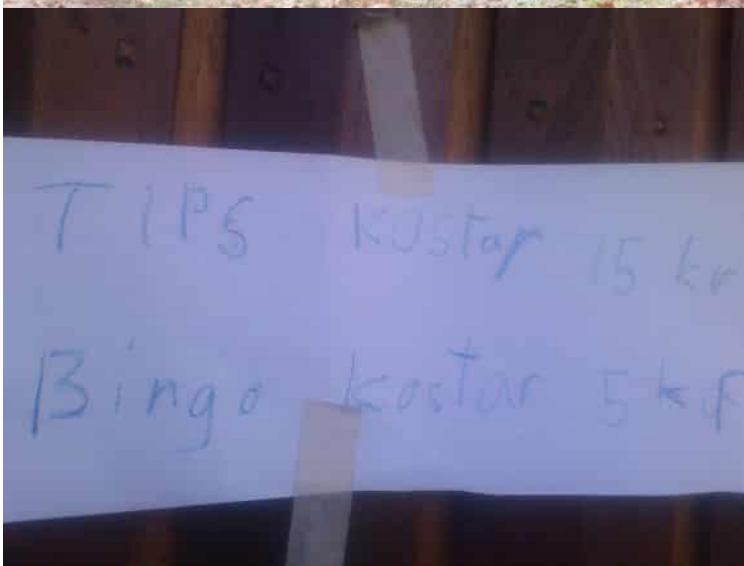 TIPS kostar 15 kr
Bingo kostar 5 kr